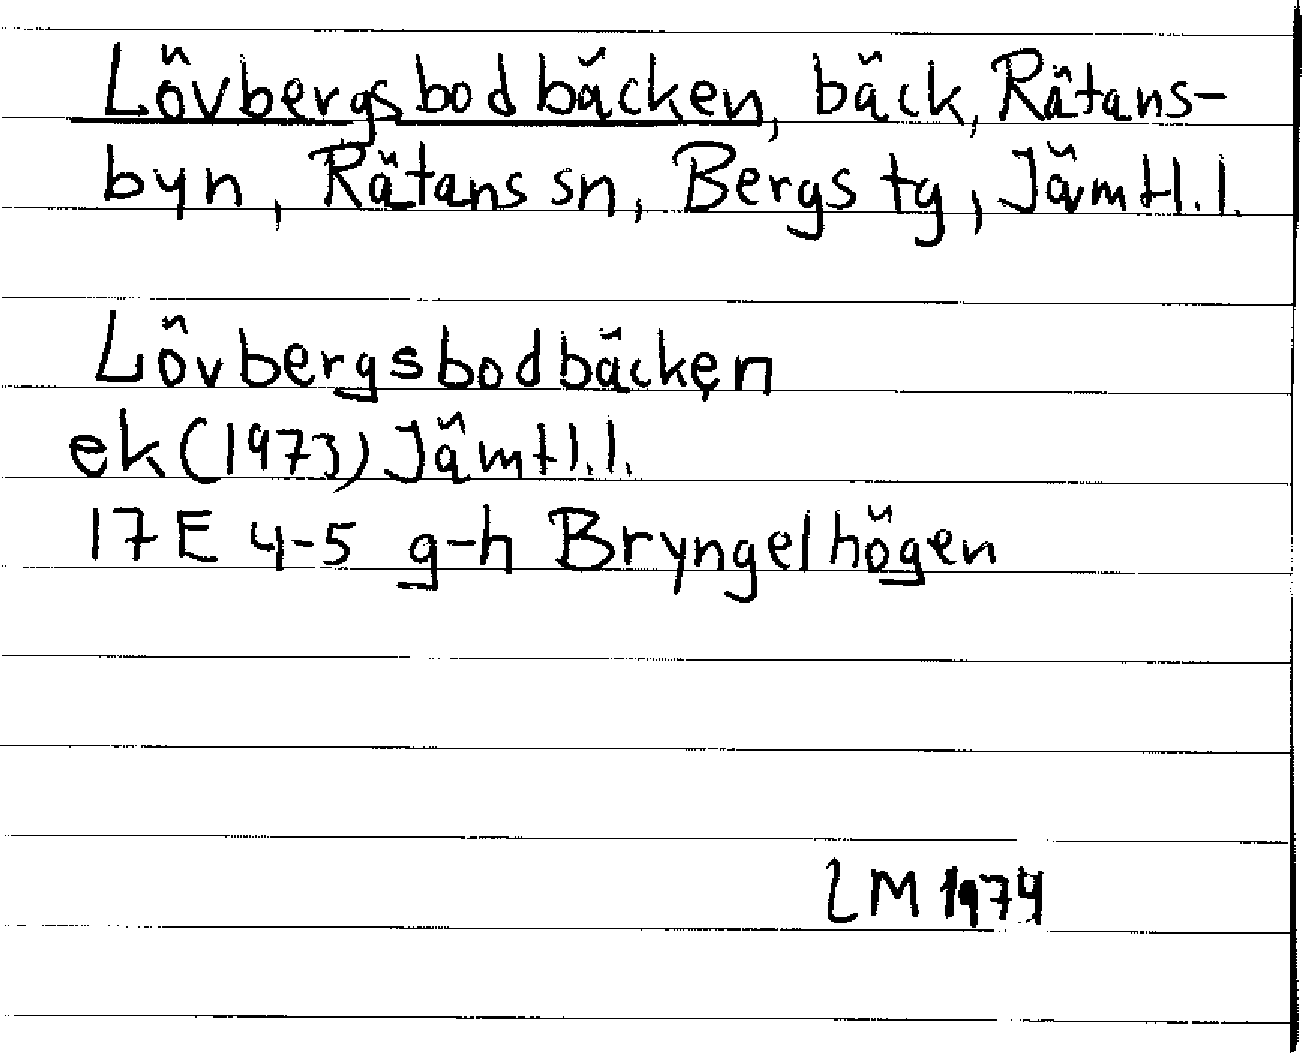 Lövbergsbodbäcken, bäck, Rätans-
byn, Rätans sn, Bergs tg, Jämtl.l.
Lövbergsbodbäcken
ek (1973) Jämtl.l.
17E 4-5 g-h Bryngelhögen
LM 1974